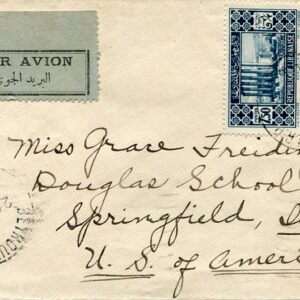 R AVION
البريد الجوي
REPUBLIQUE LIBANAISE
Miss Grace Freidin
Douglas School
Springfield,
U. S. of Ameri